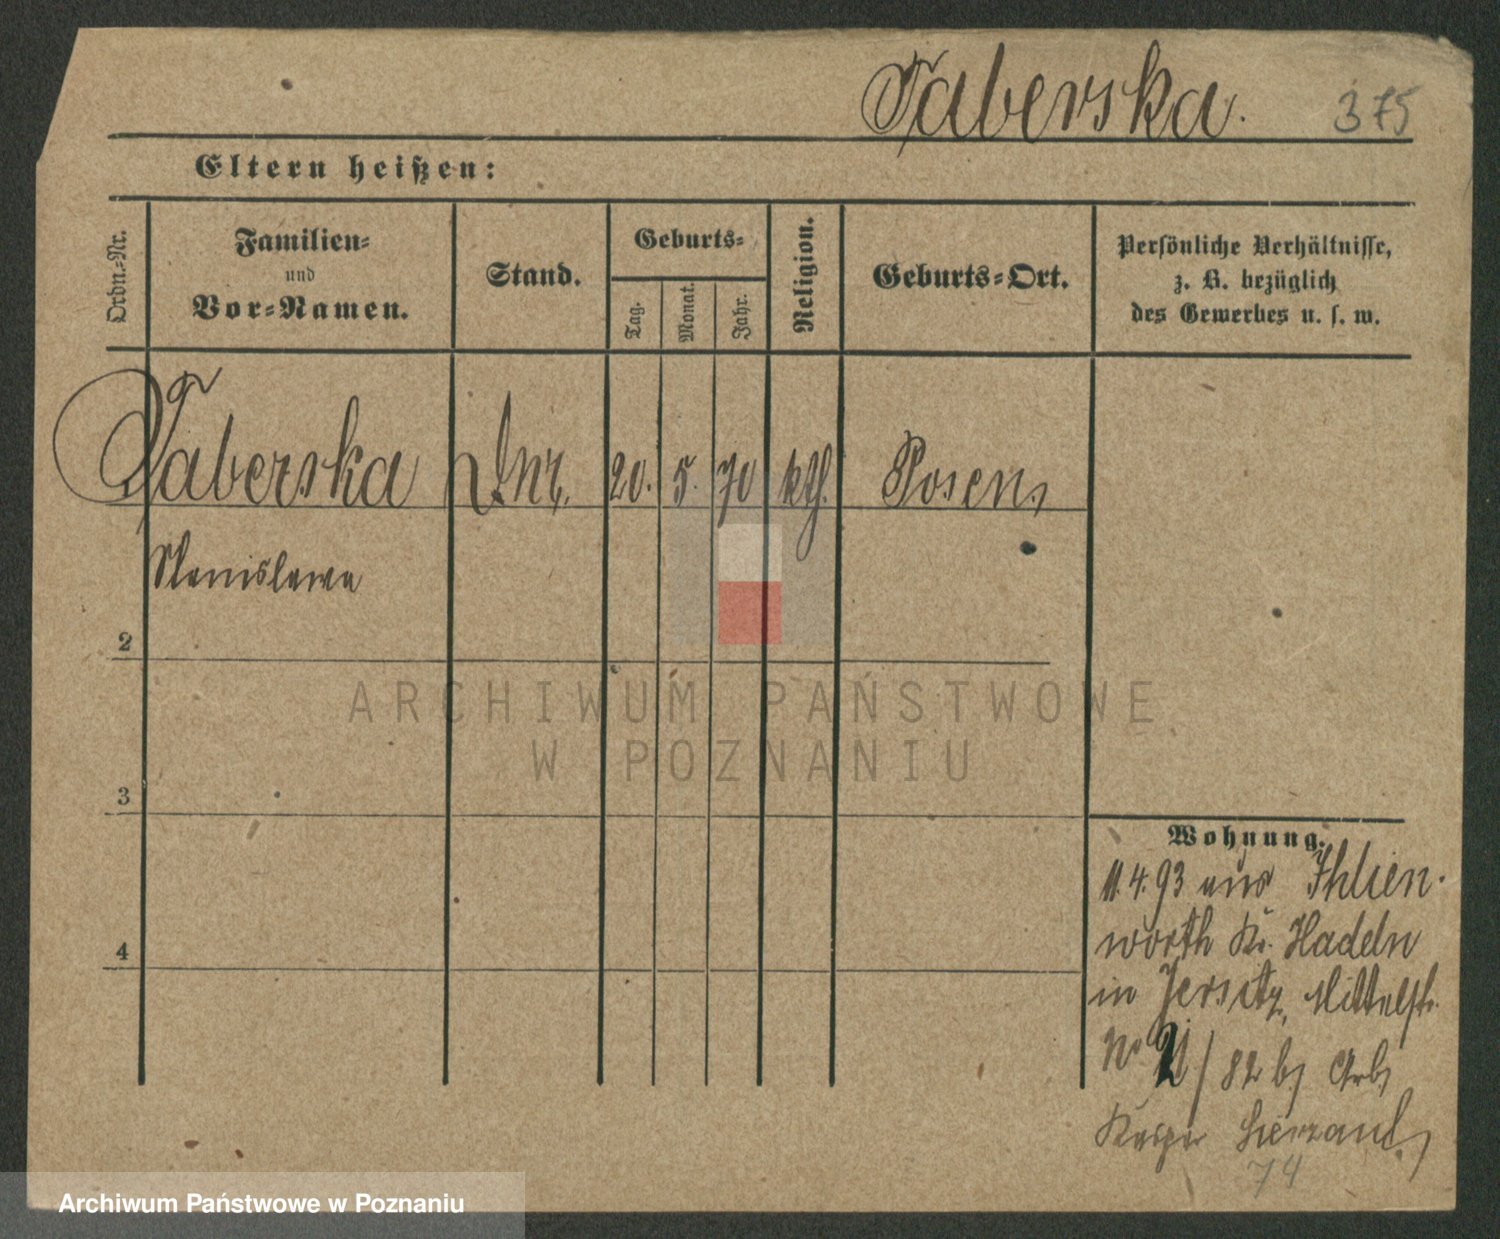 Taberska. 375
Eltern heißen:
Ordn.-Nr.
Familien-
und
Vor-Namen.
Stand.
Geburts-
Tag.
Monat.
Jahr.
Religion.
Geburts-Ort.
Persönliche Verhältnisse,
z. B. bezüglich
des Gewerbes u. s. w.
Taberska 20. 5. 70 kth. Posen
Stanislawa
2
3
4
Wohnung.
11.4.93 aus Ihlien-
worth Kr. Hadeln
in Jersitz, Mittelstr.
No / 82 b/ Arb
Kasper
74
ARCHIWUM PAŃSTWOWE
W POZNANIU
Archiwum Państwowe w Poznaniu